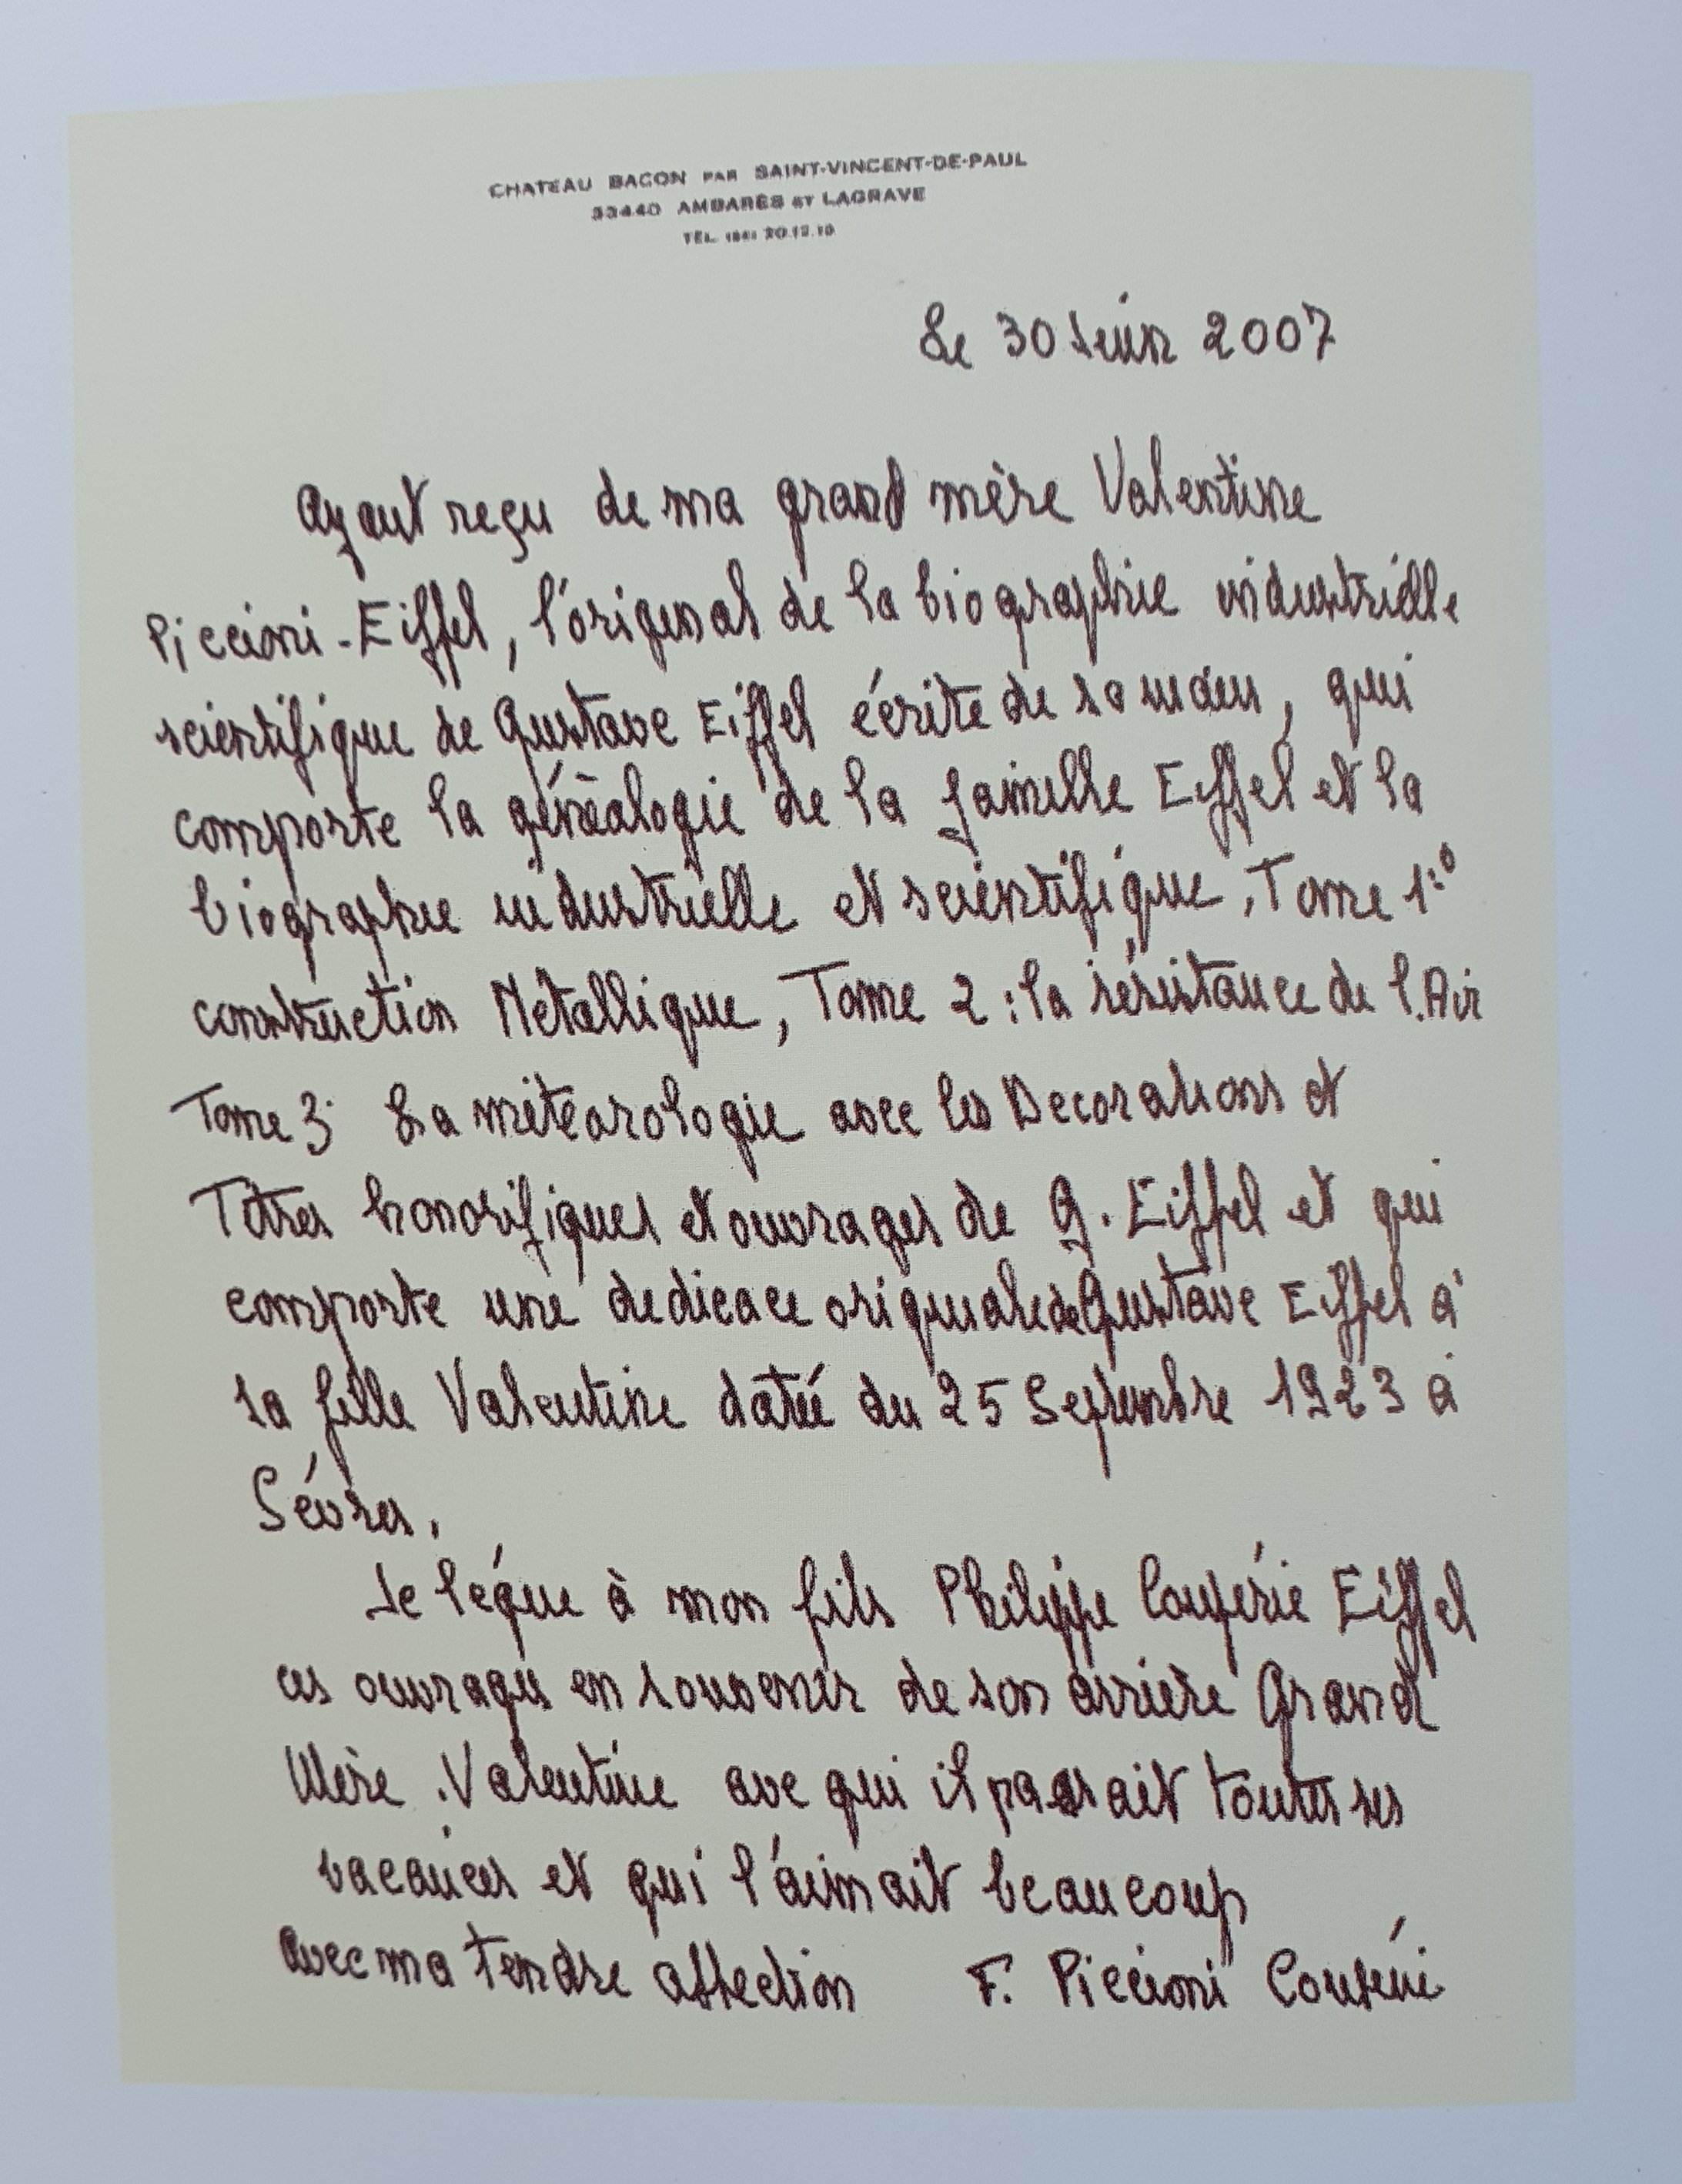 CHATEAU BACON PAR SAINT-VINCENT-DE-PAUL
33440 AMBARÈS ET LAGRAVE
TÉL. (56) 20.12.10
Le 30 Juin 2007
Ayant reçu de ma grand mère Valentine
Piccioni-Eiffel, l'original de la biographie industrielle
scientifique de Gustave Eiffel écrite de sa main, qui
comporte la généalogie de la famille Eiffel et la
biographie industrielle et scientifique, Tome 1:
construction Métallique, Tome 2 : la résistance de l'Air
Tome 3 La météorologie avec les Decorations et
Titres honorifiques et ouvrages de G. Eiffel et qui
comporte une dedicace originale de Gustave Eiffel à
sa fille Valentine datée du 25 Septembre 1923 à
Sévres.
Je légue à mon fils Philippe Coupérie Eiffel
ces ouvrages en souvenir de son arrière Grand
Mère Valentine ave qui il passait toutes ses
vacances et qui l'aimait beaucoup
avec ma tendre affection F. Piccioni Coupérie